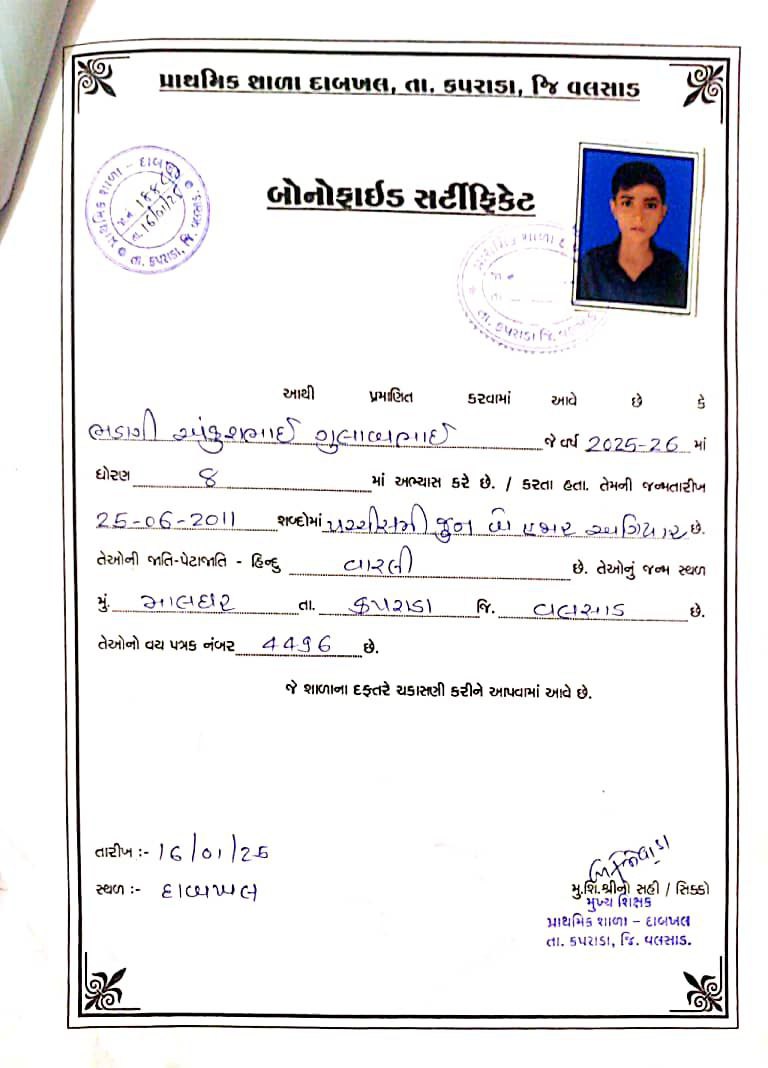 પ્રાથમિક શાળા દાબખલ, તા. કપરાડા, જિ વલસાડ
પ્રાથમિક શાળા - દાબખલ
તા. કપરાડા, જિ. વલસાડ.
જા.ન.
તા. 16/01/26
બોનોફાઇડ સર્ટીફિકેટ
પ્રાથમિક શાળા દ
જા ન
તા
તા. કપરાડા જિ. વલસાડ
આથી પ્રમાણિત કરવામાં આવે છે કે
અંકુશભાઈ ગુલાબભાઈ જે વર્ષ 2025-26 માં
ધોરણ 8 માં અભ્યાસ કરે છે. / કરતા હતા. તેમની જન્મતારીખ
25-06-2011 શબ્દોમાં પચ્ચીસમી જુન બે હજાર અગિયાર છે.
તેઓની જાતિ-પેટાજાતિ - હિન્દુ વારલી છે. તેઓનું જન્મ સ્થળ
મું. માલઘર તા. કપરાડા જિ. વલસાડ છે.
તેઓનો વય પત્રક નંબર 4496 છે.
જે શાળાના દફતરે ચકાસણી કરીને આપવામાં આવે છે.
તારીખ :- 16/01/26
સ્થળ :- દાબખલ
મુ.શિ.શ્રીનો સહી / સિક્કો
મુખ્ય શિક્ષક
પ્રાથમિક શાળા - દાબખલ
તા. કપરાડા, જિ. વલસાડ.